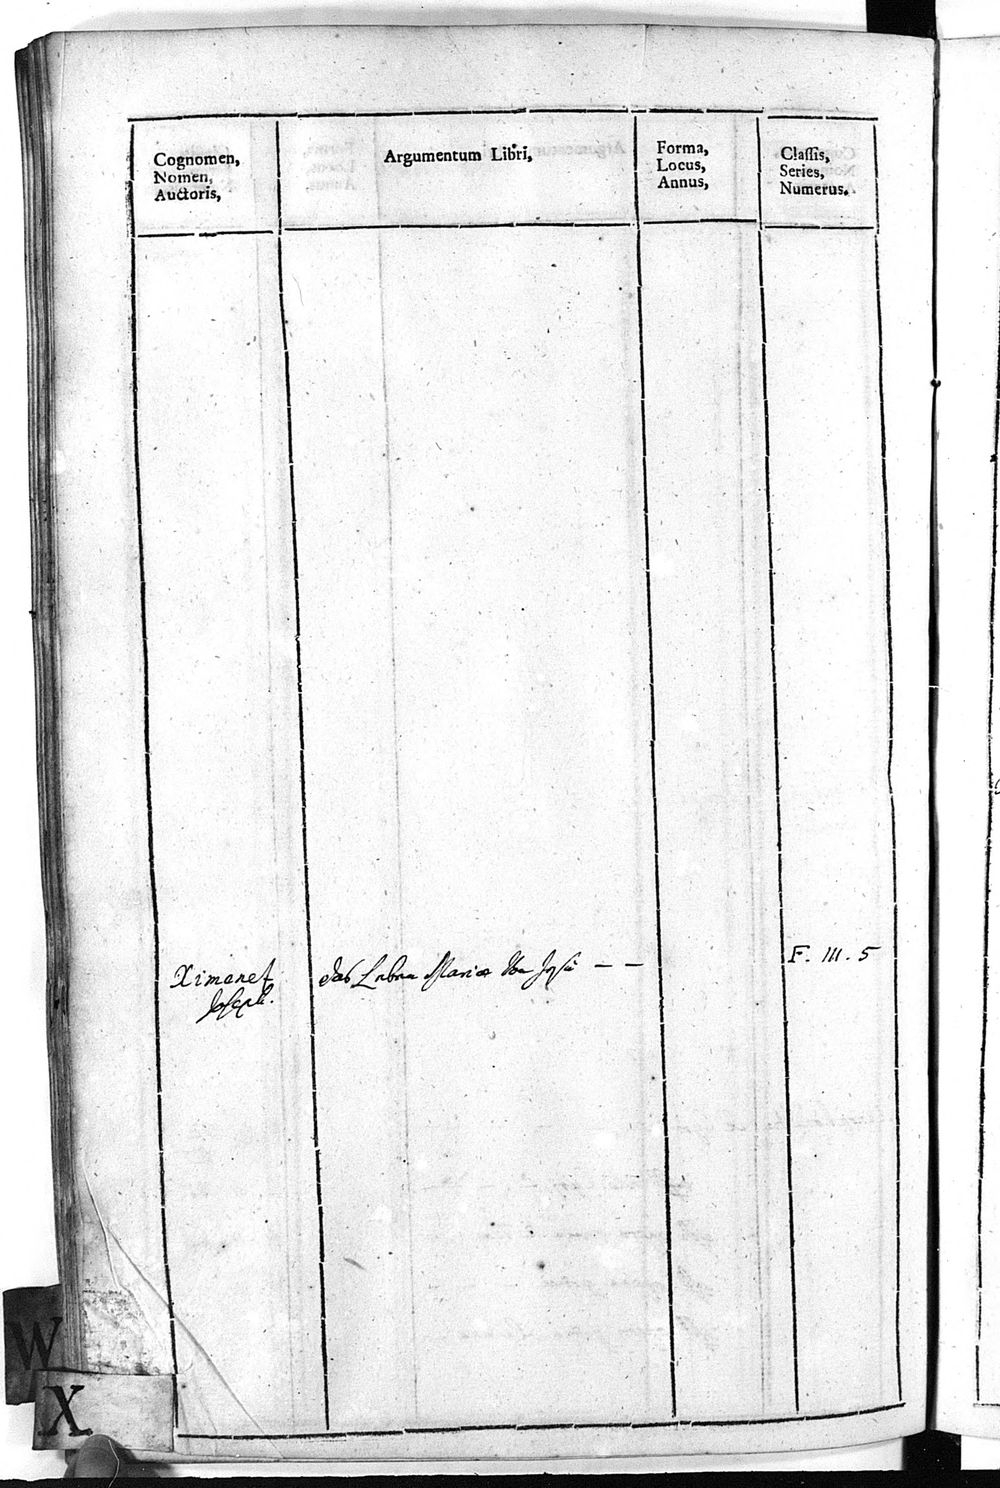 Cognomen,
Nomen,
Auctoris,
Argumentum Libri,
Forma,
Locus,
Annus,
Classis,
Series,
Numerus.
Ximenet
Joseph.
das Leben Mariæ von Jesu – –
F. III. 5
W
X